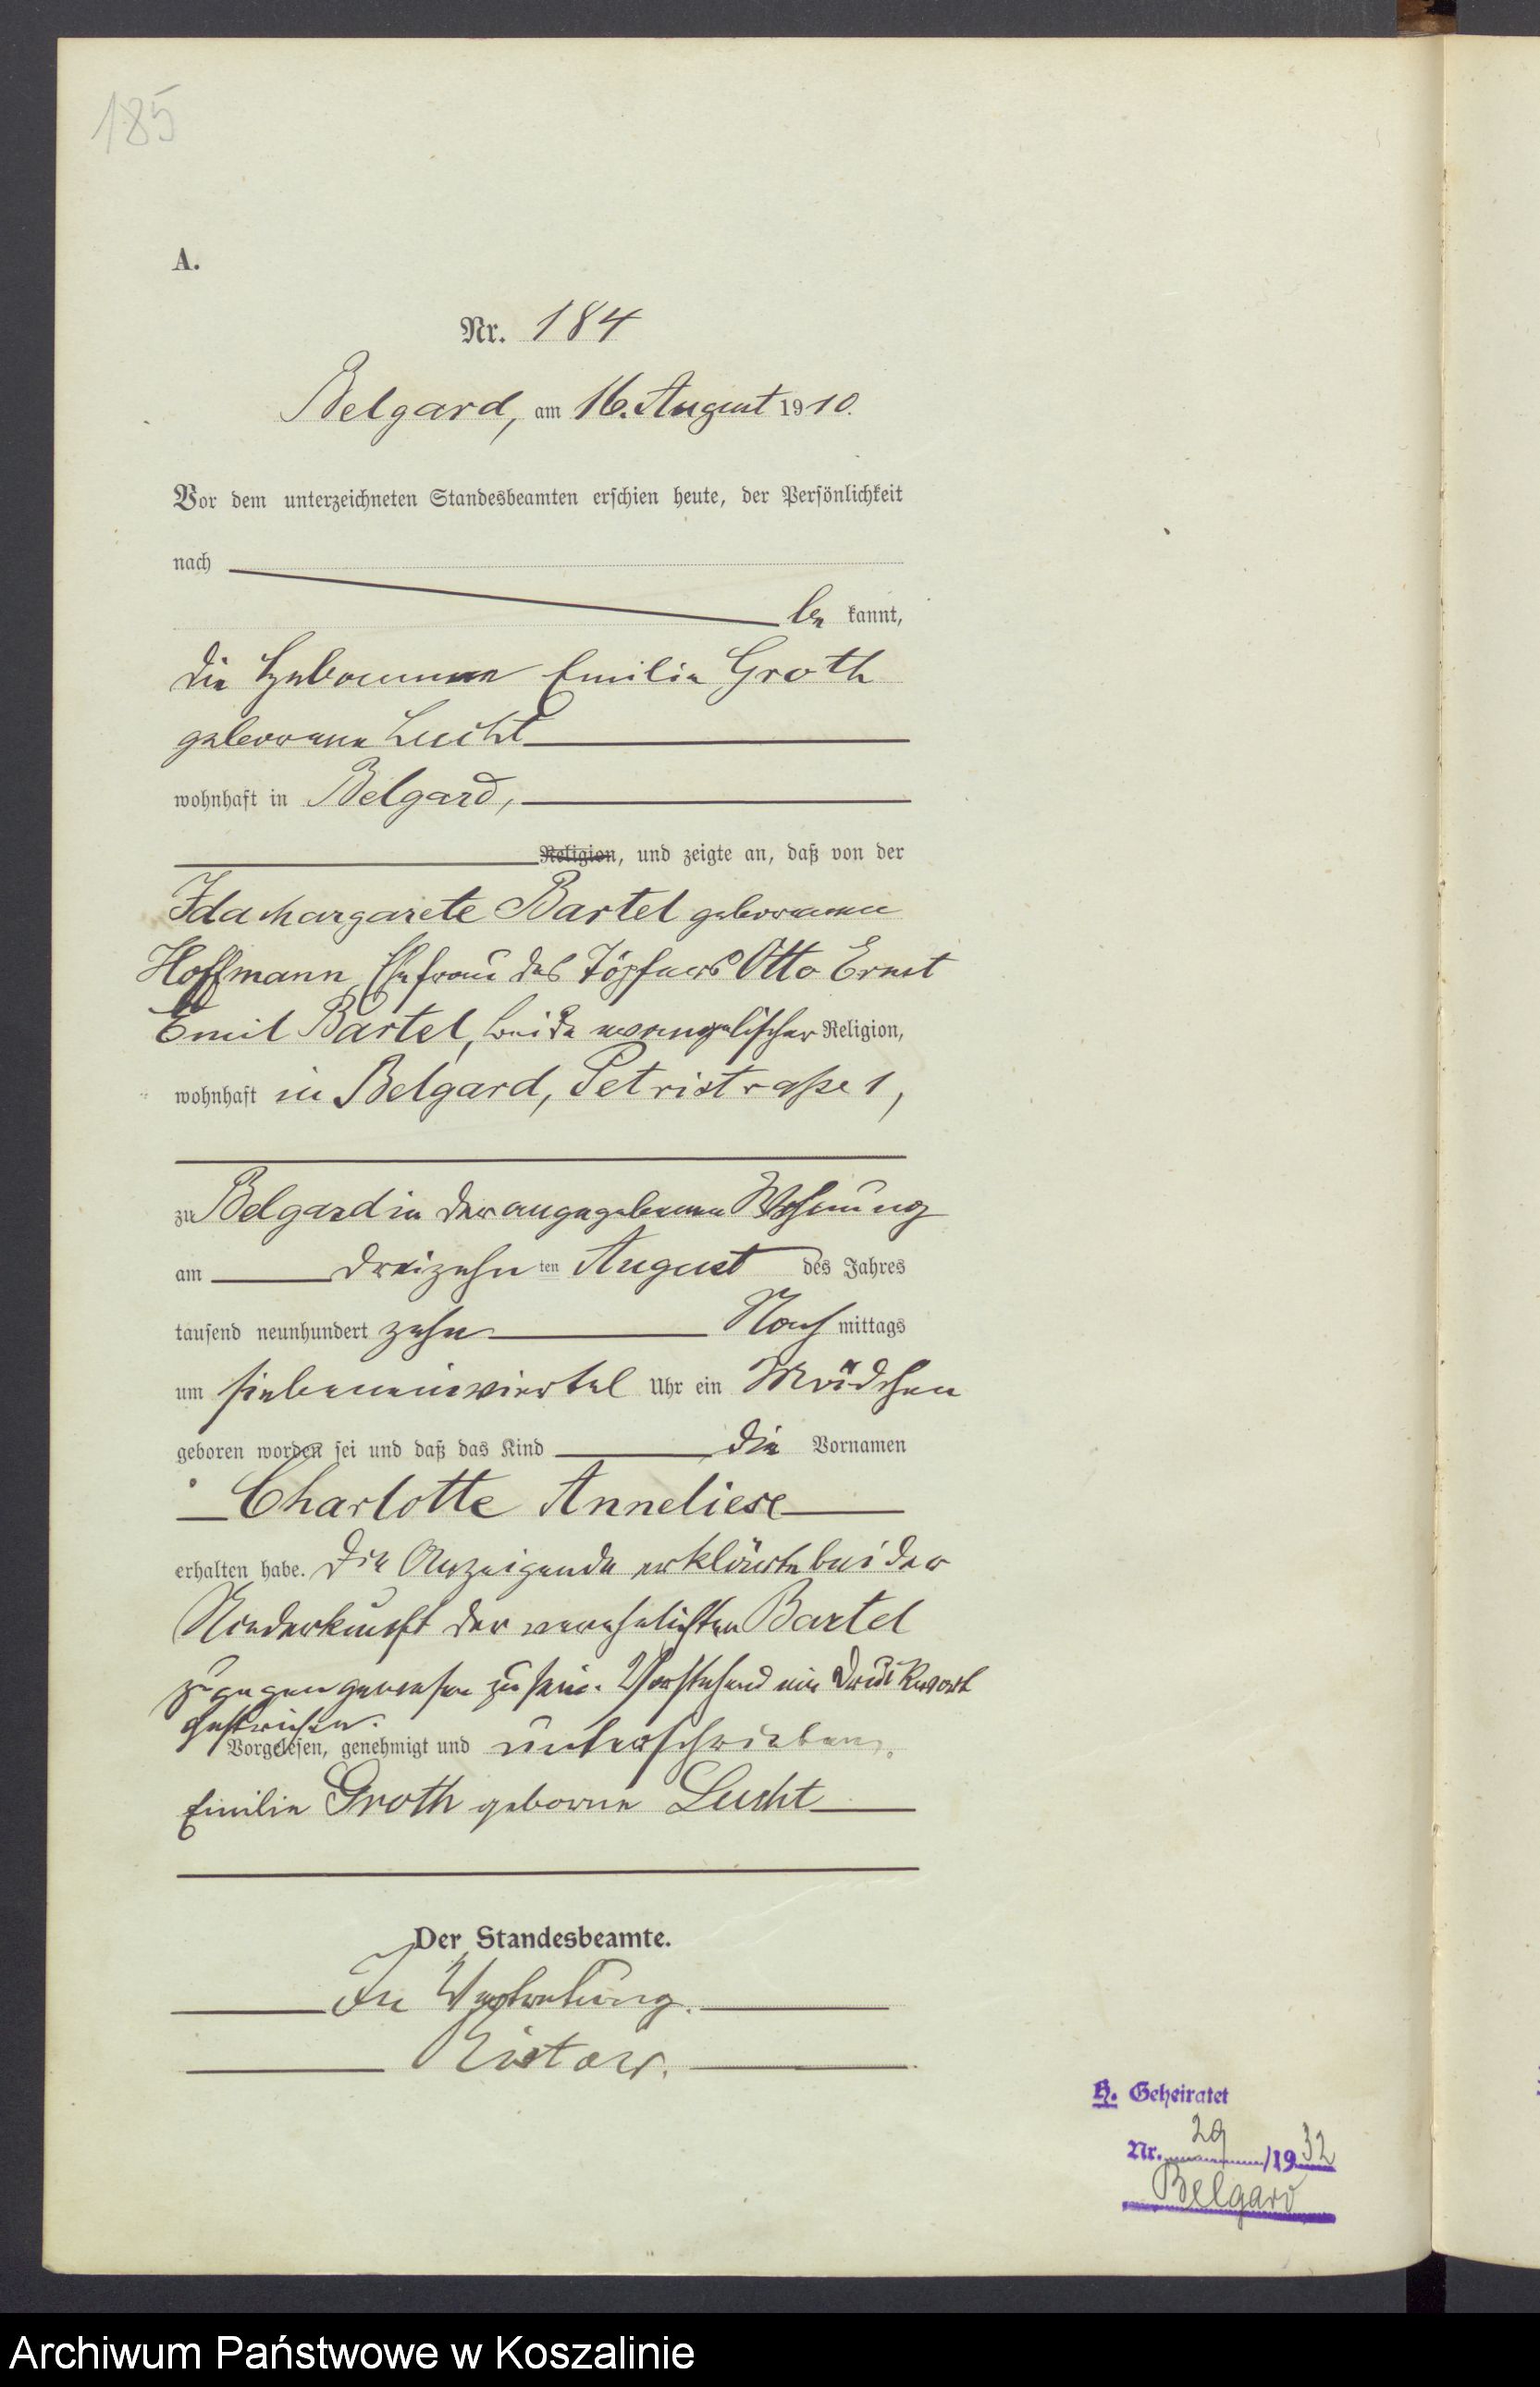 185
A.
Nr. 184
Belgard, am 16. August 1910.
Vor dem unterzeichneten Standesbeamten erschien heute, der Persönlichkeit
nach
be kannt,
die Hebamme Emilie Groth
geborene Lucht
wohnhaft in Belgard,
Religion, und zeigte an, daß von der
Ida Margarete Bartel geborenen
Hoffmann, Ehefrau des Töpfers Otto Ernst
Emil Bartel, beide evangelischer Religion,
wohnhaft in Belgard, Petristraße 1,
zu Belgard in der angegebenen Wohnung
am dreizehn ten August des Jahres
tausend neunhundert zehn Nach mittags
um siebeneinviertel Uhr ein Mädchen
geboren worden sei und daß das Kind die Vornamen
Charlotte Anneliese
erhalten habe. Die Anzeigende erklärte bei der
Niederkunft der verehelichten Bartel
zugegen gewesen zu sein. Vorstehend ein Druckwort
gestrichen.
Vorgelesen, genehmigt und unterschrieben.
Emilie Groth geborne Lucht
Der Standesbeamte.
In Vertretung.
Ristow.
H. Geheiratet
Nr. 29/1932
Belgard
Archiwum Państwowe w Koszalinie